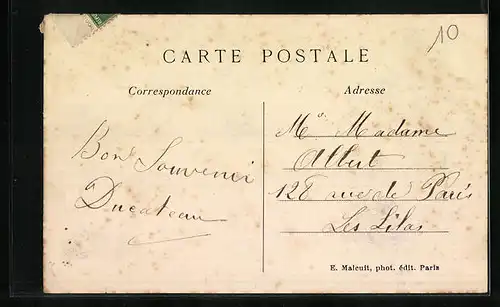 10
CARTE POSTALE
Correspondance
Adresse
Bons Souvenir
Ducateau
Mr Madame
Albert
128 rue de Paris
Les Lilas
E. Malcuit, phot. édit. Paris